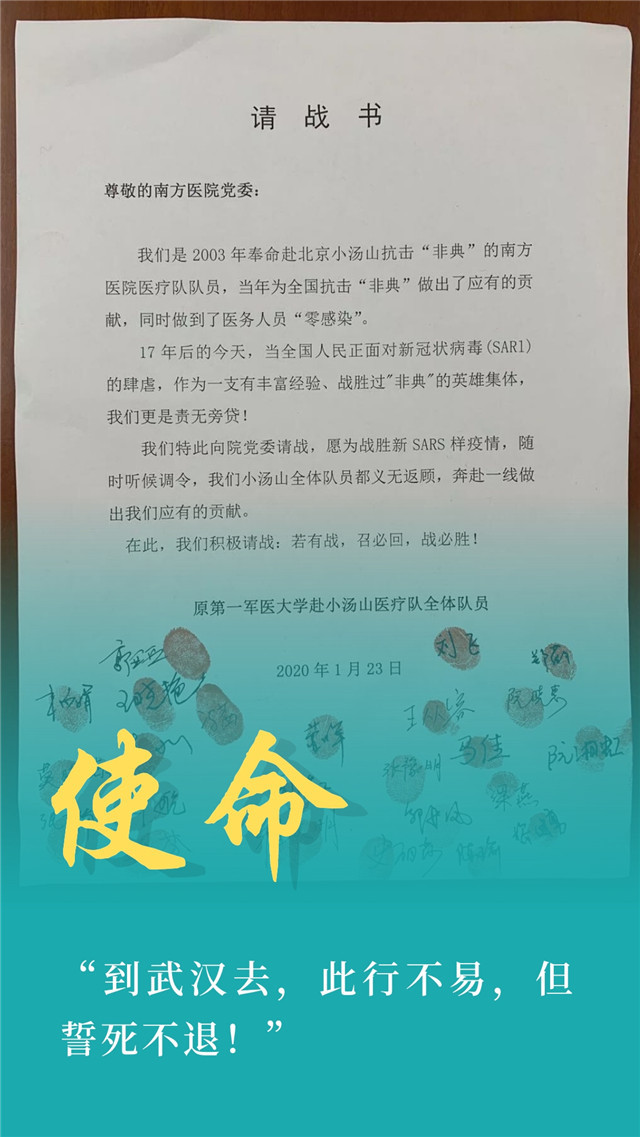 请战书
尊敬的南方医院党委：
我们是2003年奉命赴北京小汤山抗击“非典”的南方
医院医疗队队员，当年为全国抗击“非典”做出了应有的贡
献，同时做到了医务人员“零感染”。
17年后的今天，当全国人民正面对新冠状病毒(SARI)
的肆虐，作为一支有丰富经验、战胜过"非典"的英雄集体，
我们更是责无旁贷！
我们特此向院党委请战，愿为战胜新SARS样疫情，随
时听候调令，我们小汤山全体队员都义无返顾，奔赴一线做
出我们应有的贡献。
在此，我们积极请战：若有战，召必回，战必胜！
原第一军医大学赴小汤山医疗队全体队员
刘飞
2020年1月23日
马佳
使命
“到武汉去，此行不易，但
誓死不退！”